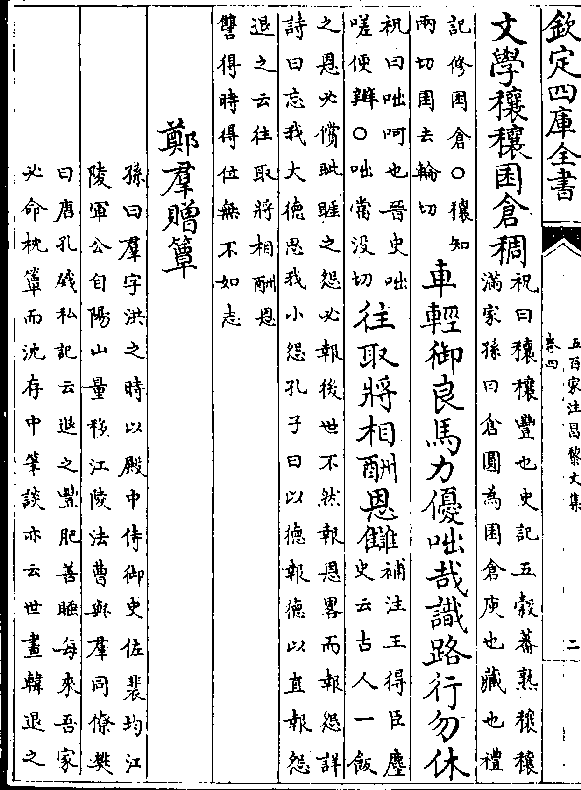 欽定四庫全書
五百家注昌黎文集
卷四
二
文學穰穰囷倉稠
祝曰穰穰豐也史記五穀蕃熟穰穰
滿家孫曰倉圓為囷倉庾也藏也禮
記修囷倉○穰知
兩切囷去輪切
車輕御良馬力優咄哉識路行勿休
祝曰咄呵也晉史咄
嗟便辦○咄當没切
往取將相酬恩讎
補注王得臣麈
史云古人一飯
之恩必償眦睚之怨必報後世不然報恩畧而報怨詳
詩曰忘我大德思我小怨孔子曰以德報德以直報怨
退之云往取將相酬恩
讐得時得位無不如志
鄭羣贈簟
孫曰羣字洪之時以殿中侍御史佐裴均江
陵軍公自陽山量移江陵法曹與羣同僚樊
曰唐孔戣私記云退之豐肥善睡每來吾家
必命枕簟而沈存中筆談亦云世畫韓退之